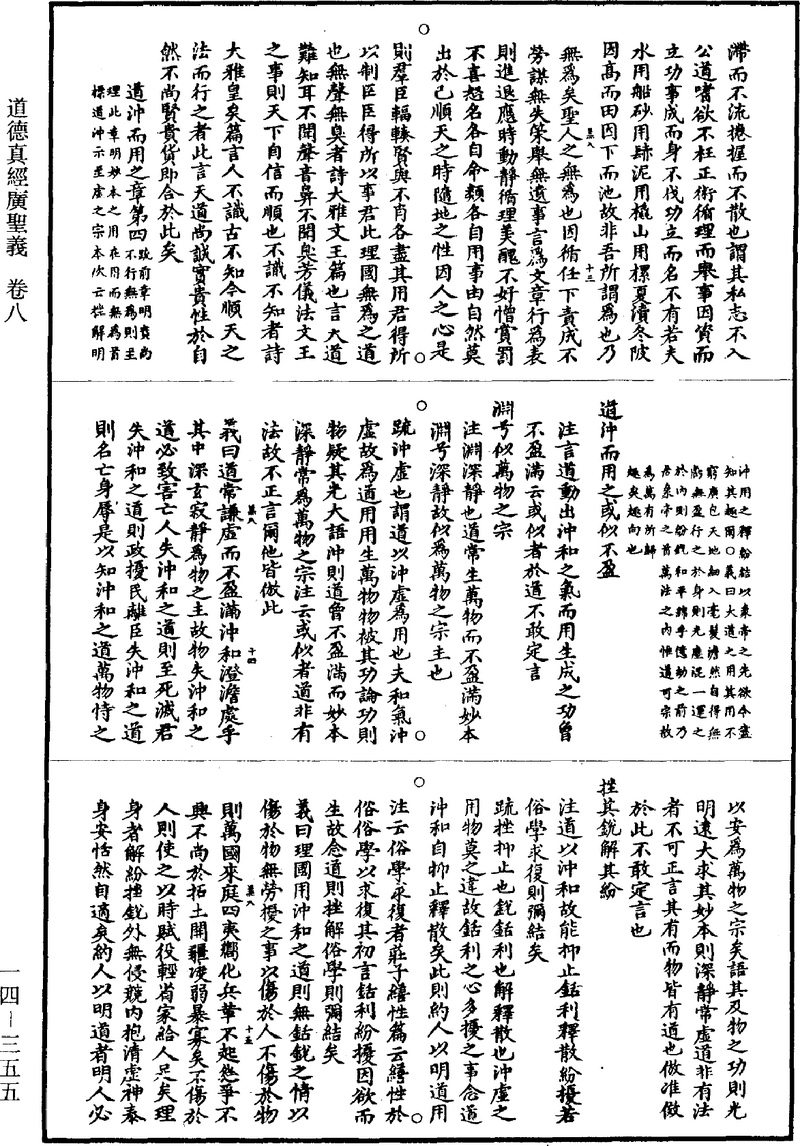 道德真經廣聖義　卷八
滯而不流捲握而不散也謂其私志不入
公道嗜欲不枉正術循理而舉事因資而
立功事成而身不伐功立而名不有若夫
水用船砂用𨁂泥用橇山用樏夏瀆冬陂
因高而田因下而池故非吾所謂為也乃
無為矣聖人之無為也因循任下責成不
勞謀無失策舉無遺事言為文章行為表
則進退應時動靜循理美醜不好憎賞罰
不喜怒名各自命類各自用事由自然莫
出於己順天之時隨地之性因人之心是
則羣臣輻輳賢與不肖各盡其用君得所
以制臣臣得所以事君此理國無為之道
也無聲無臭者詩大雅文王篇也言大道
難知耳不聞聲音鼻不聞臭芳儀法文王
之事則天下自信而順也不識不知者詩
大雅皇矣篇言人不識古不知今順天之
法而行之者此言天道尚誠實貴性於自
然不尚賢貴貨即合於此矣
道沖而用之章第四
疏前章明賓尚
不行無為則至
理此章明妙本之用在用而無為首
標道沖示至虛之宗本次云挫解明
沖用之釋紛結以象帝之先欲令盡
知其趣爾○義曰大道之用其用不
窮廣包天地細入毫髮澹然自得無
虧無盈行之於身則光塵混一運之
於內則紛銳和平歸乎億劫之前乃
居象帝之首萬法之內惟道可宗故
為萬有所歸
趣矣趣向也
道沖而用之或似不盈
注言道動出沖和之氣而用生成之功曾
不盈滿云或似者於道不敢定言
淵兮似萬物之宗
注淵深靜也道常生萬物而不盈滿妙本
淵兮深靜故似為萬物之宗主也
疏沖虛也謂道以沖虛為用也夫和氣沖
虛故為道用用生萬物物被其功論功則
物疑其光大語沖則道曾不盈滿而妙本
深靜常為萬物之宗注云或似者道非有
法故不正言爾他皆倣此
義曰道常謙虛而不盈滿沖和澄澹處乎
其中深玄寂靜為物之主故物失沖和之
道必致害亡人失沖和之道則至死滅君
失沖和之道則政擾民離臣失沖和之道
則名亡身辱是以知沖和之道萬物恃之
以安為萬物之宗矣語其及物之功則光
明遠大求其妙本則深靜常虛道非有法
者不可正言其有而物皆有道也倣准倣
於此不敢定言也
挫其銳解其紛
注道以沖和故能抑止銛利釋散紛擾若
俗學求復則彌結矣
疏挫抑止也銳銛利也解釋散也沖虛之
用物莫之違故銛利之心多擾之事念道
沖和自抑止釋散矣此則約人以明道用
注云俗學求復者莊子繕性篇云繕性於
俗俗學以求復其初言銛利紛擾因欲而
生故念道則挫解俗學則彌結矣
義曰理國用沖和之道則無銛銳之情以
傷於物無勞擾之事以傷於人不傷於物
則萬國來庭四夷嚮化兵革不起怨爭不
興不尚於拓土開疆凌弱暴寡矣不傷於
人則使之以時賦役輕省家給人足矣理
身者解紛挫銳外無侵競內抱清虛神泰
身安恬然自適矣約人以明道者明人必
一四—三五五